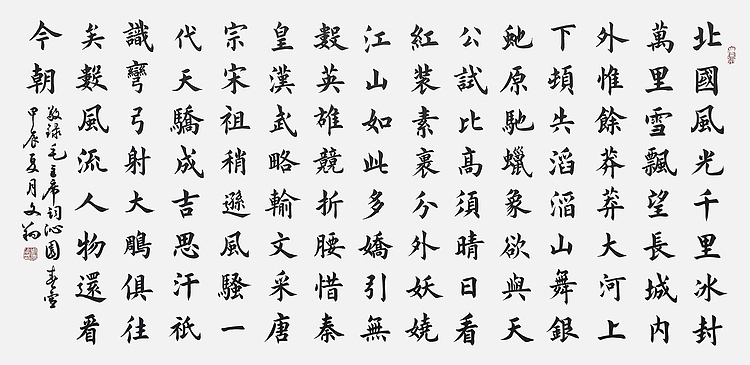 北國風光千里冰封
萬里雪飄望長城內
外惟餘莽莽大河上
下頓失滔滔山舞銀
虵原馳蠟象欲與天
公試比高須晴日看
紅裝素裹分外妖嬈
江山如此多嬌引無
數英雄競折腰惜秦
皇漢武略輸文采唐
宗宋祖稍遜風騷一
代天驕成吉思汗祇
識彎弓射大鵰俱往
矣數風流人物還看
今朝
敬錄毛主席詞沁園春雪
甲辰夏月文